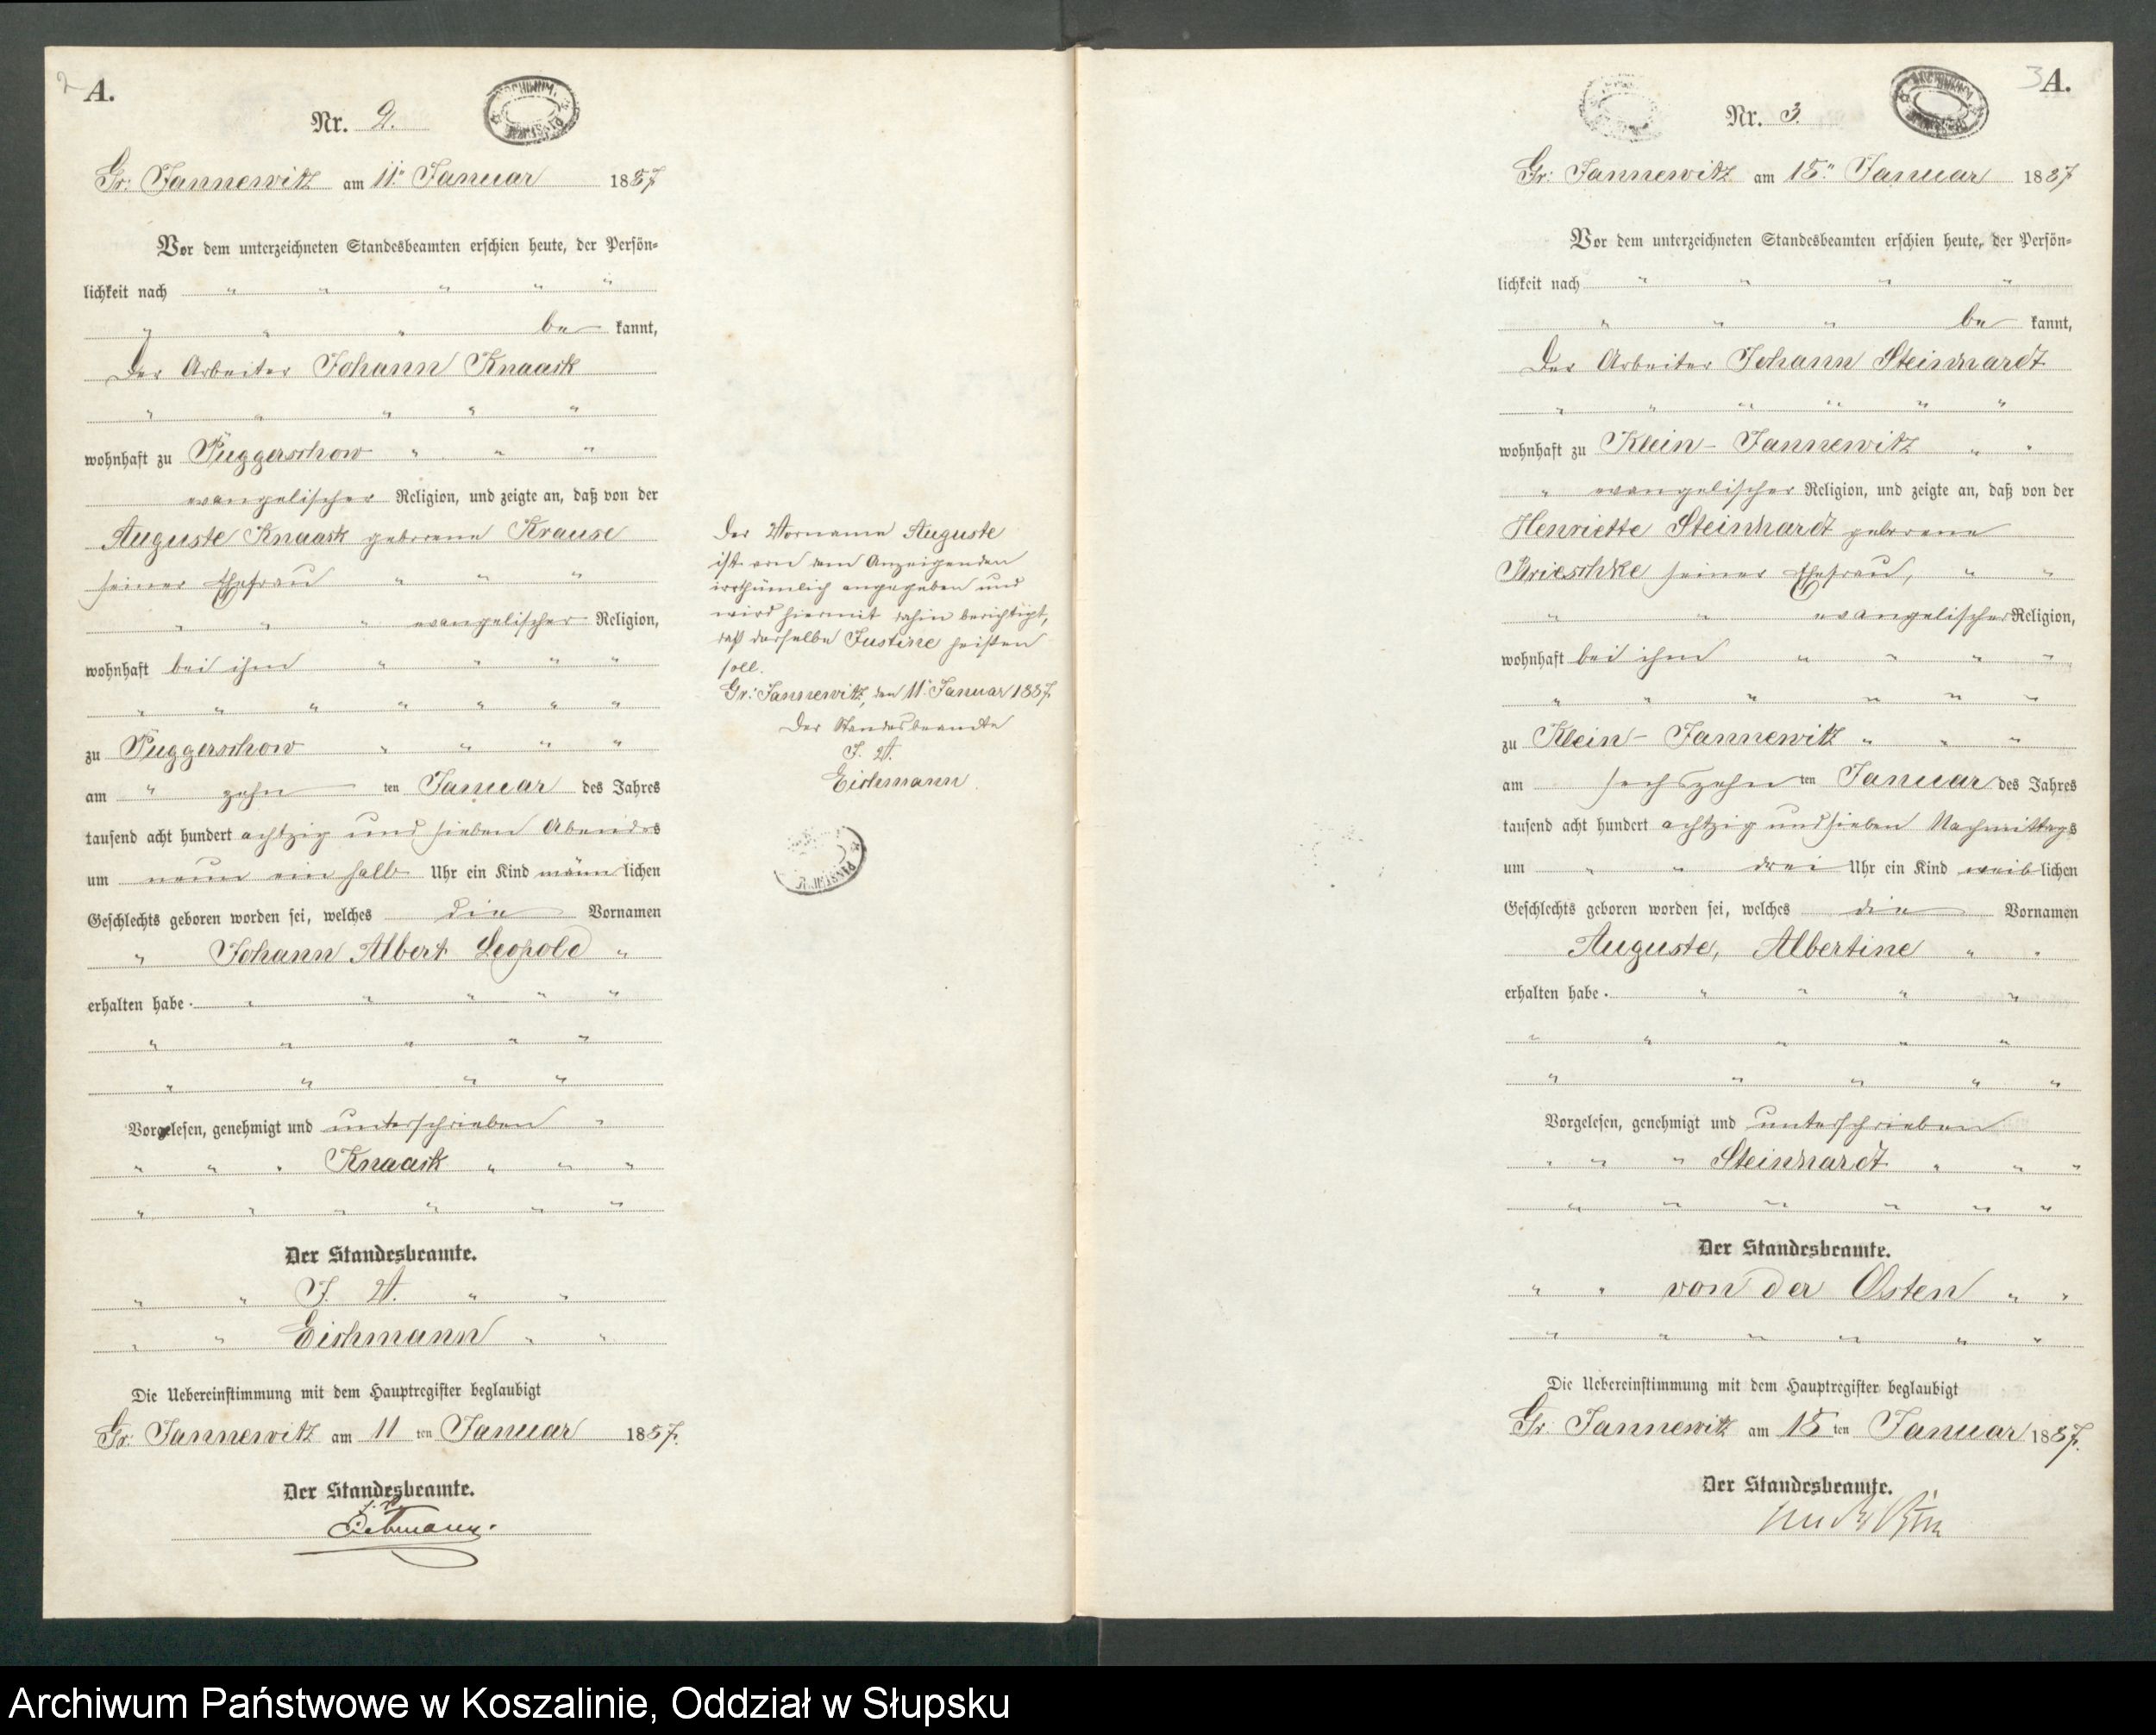 2
A.
Nr. 2.
ARCHIWUM PAŃSTWOWE
Gr: Jannewitz am 11.ⁿ Januar 1887
Vor dem unterzeichneten Standesbeamten erschien heute, der Persön-
lichkeit nach
be kannt,
Der Arbeiter Johann Knaack
wohnhaft zu Puggerschow
evangelischer Religion, und zeigte an, daß von der
Auguste Knaack geborene Krause
seiner Ehefrau
evangelischer Religion,
wohnhaft bei ihm
zu Puggerschow
am zehn ten Januar des Jahres
tausend acht hundert achtzig und sieben Abends
um neun ein halb Uhr ein Kind männ lichen
Geschlechts geboren worden sei, welches die Vornamen
Johann Albert Leopold
erhalten habe.
Vorgelesen, genehmigt und unterschrieben
Knaack
Der Standesbeamte.
J. V.
Eichmann
Die Uebereinstimmung mit dem Hauptregister beglaubigt
Gr: Jannewitz am 11 ten Januar 1887.
Der Standesbeamte.
J. V.
Eichmann.
Der Vorname Auguste
ist von dem Anzeigenden
irrthümlich angegeben und
wird hiermit dahin berichtigt,
daß derselbe Justine heißen
soll.
Gr: Jannewitz, den 11. Januar 1887.
Der Standesbeamte
J. V.
Eichmann.
3
A.
Nr. 3.
Gr: Jannewitz am 18.ⁿ Januar 1887
Vor dem unterzeichneten Standesbeamten erschien heute, der Persön-
lichkeit nach
be kannt,
Der Arbeiter Johann Steinhardt
wohnhaft zu Klein-Jannewitz
evangelischer Religion, und zeigte an, daß von der
Henriette Steinhardt geborene
seiner Ehefrau,
evangelischer Religion,
wohnhaft bei ihm
zu Klein-Jannewitz
am sechszehn ten Januar des Jahres
tausend acht hundert achtzig und sieben Nachmittags
um drei Uhr ein Kind weib lichen
Geschlechts geboren worden sei, welches die Vornamen
Auguste, Albertine
erhalten habe.
Vorgelesen, genehmigt und unterschrieben
Steinhardt
Der Standesbeamte.
von der Osten
Die Uebereinstimmung mit dem Hauptregister beglaubigt
Gr: Jannewitz am 18 ten Januar 1887.
Der Standesbeamte.
Archiwum Państwowe w Koszalinie, Oddział w Słupsku